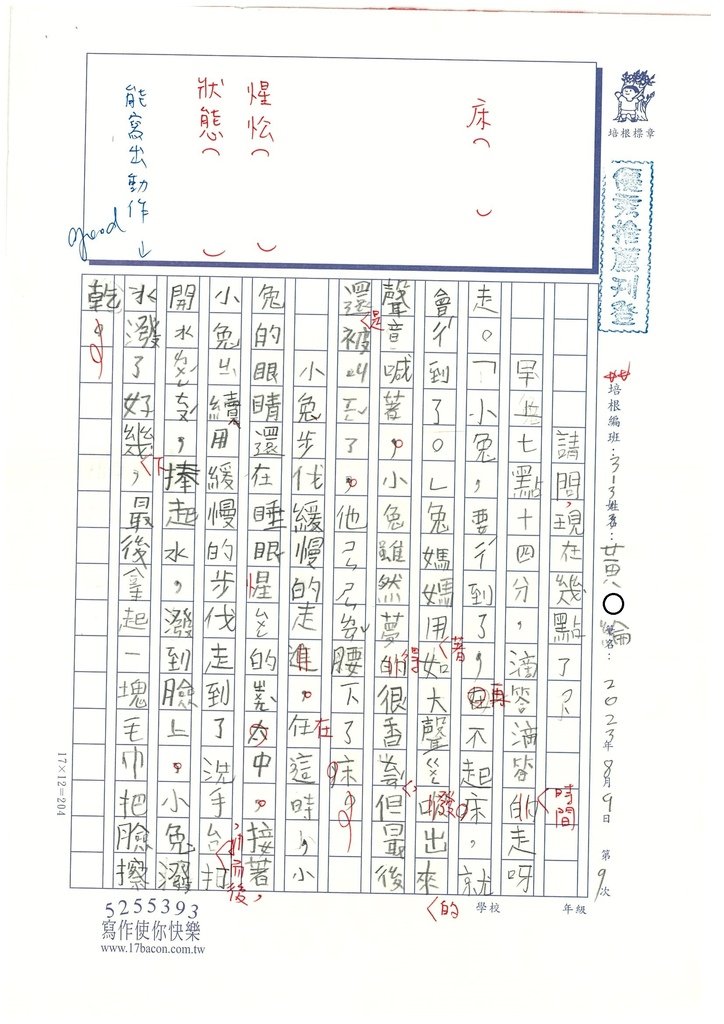 床（ ）
惺忪（ ）
狀態（ ）
能寫出動作↓
good
培根標章
優秀推薦刊登
培根編班：ㄋ1ㄋ 姓名：黃 簽名： 2023年8月9日 第9次
請問，現在幾點了ㄗ
早上七點十四分，滴答滴答的走呀
時間
走。「小兔，要ㄔ到了，不起床，就
再
會ㄔ到了。」兔媽媽用如大聲ㄍ出來
著
的
聲音喊著，小兔雖然夢的很香但最後
得
還被叫了，他ㄢㄢ腰下了床
是
小兔步伐緩慢的走進。在這時，小
在
兔的眼睛還在睡眼惺ㄙ的中。接著
小兔ㄐ續用緩慢的步伐走到了洗手台打
，而後，
開水，捧起水，潑到臉上。小兔潑
水潑了好幾，最後拿起一塊毛巾把臉擦
下
乾。
17×12=204
5255393
寫作使你快樂
www.17bacon.com.tw
學校 年級